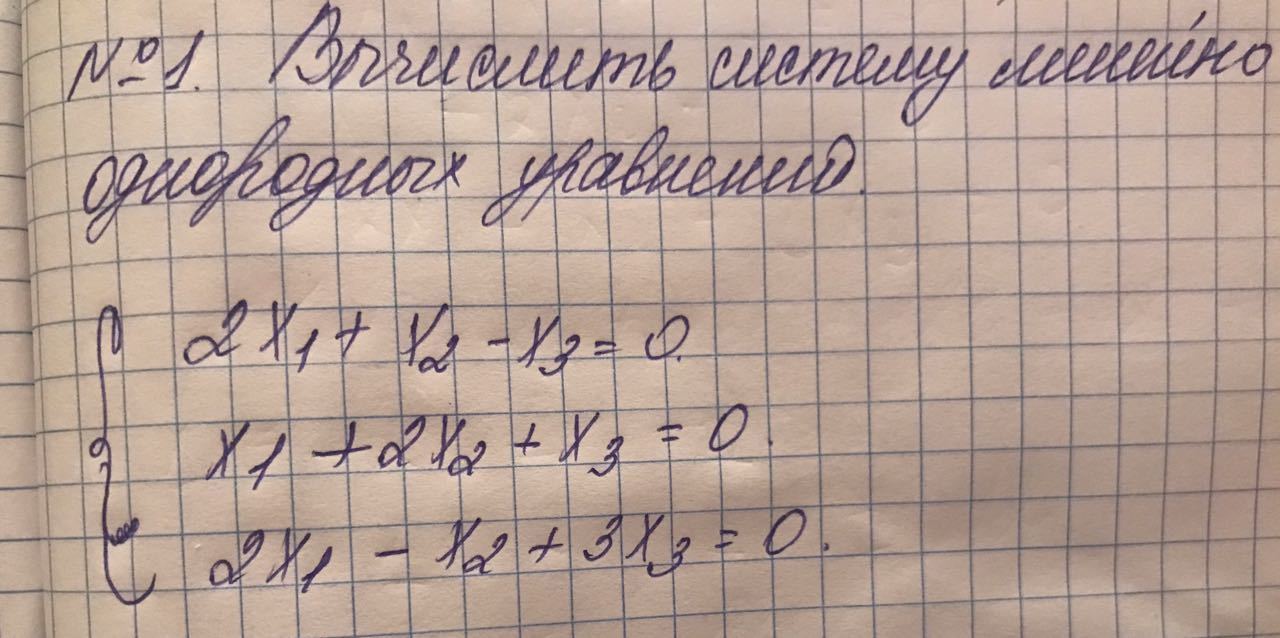 №1. Вычислить систему линейно
однородных уравнений.
2x₁ + x₂ - x₃ = 0.
x₁ + 2x₂ + x₃ = 0.
2x₁ - x₂ + 3x₃ = 0.